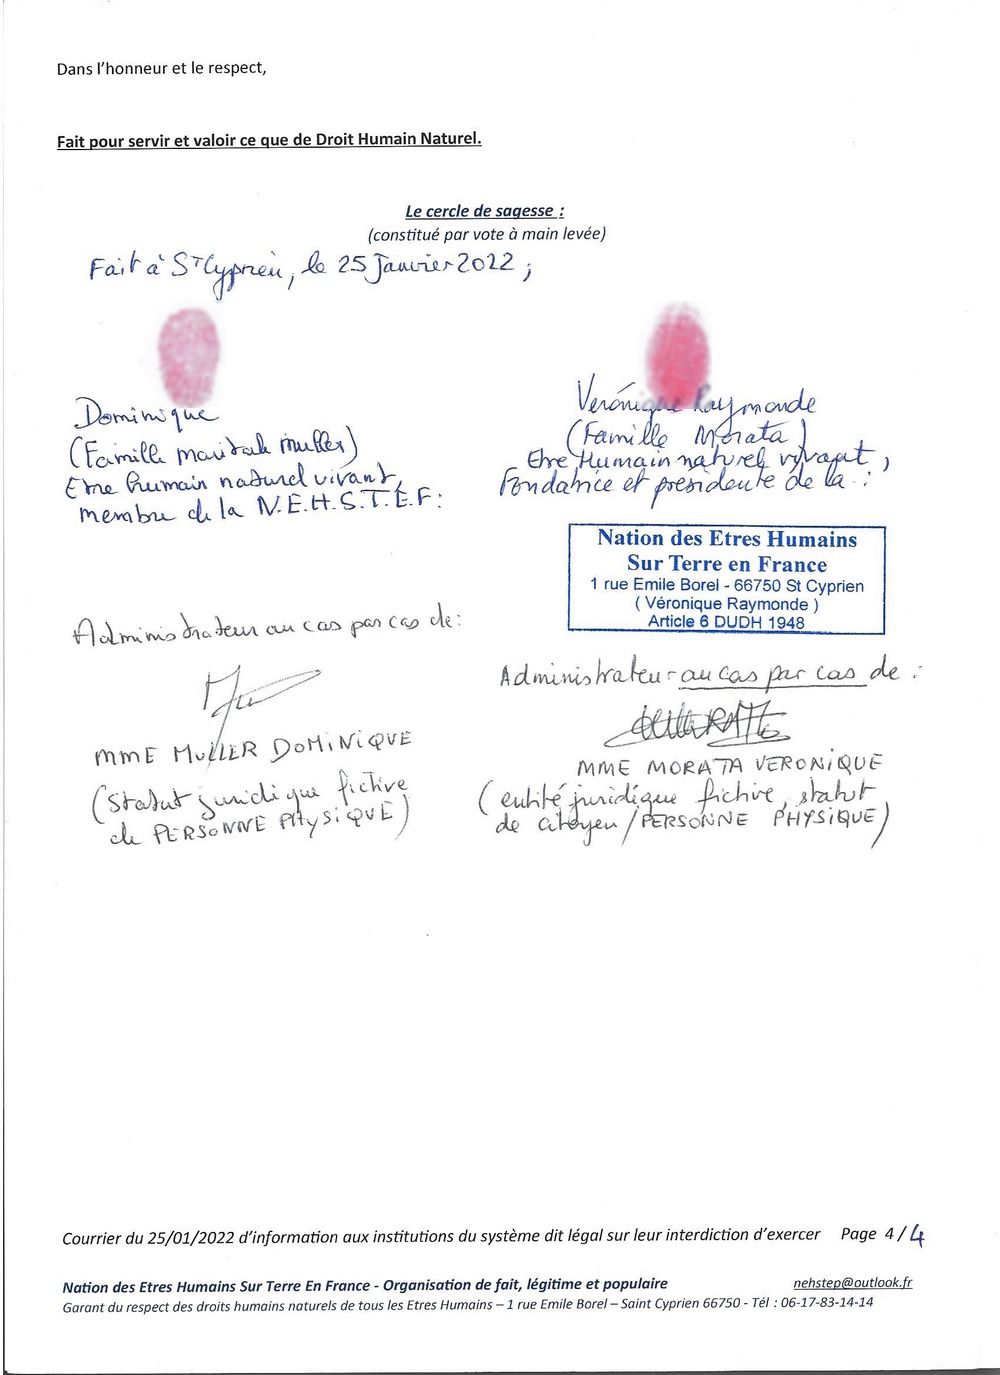 Dans l'honneur et le respect,
Fait pour servir et valoir ce que de Droit Humain Naturel.
Le cercle de sagesse :
(constitué par vote à main levée)
Fait à St Cyprien, le 25 Janvier 2022 ;
Dominique
(Famille maritale Muller)
Etre humain naturel vivant,
membre de la N.E.H.S.T.E.F :
Administrateur au cas par cas de :
MME MULLER DOMINIQUE
(Statut juridique fictive
de PERSONNE PHYSIQUE)
Véronique Raymonde
(Famille Morata)
Etre Humain naturel vivant,
Fondatrice et présidente de la :
Nation des Etres Humains
Sur Terre en France
1 rue Emile Borel - 66750 St Cyprien
( Véronique Raymonde )
Article 6 DUDH 1948
Administrateur au cas par cas de :
MME MORATA VERONIQUE
(entité juridique fictive, statut
de citoyen / PERSONNE PHYSIQUE)
Courrier du 25/01/2022 d'information aux institutions du système dit légal sur leur interdiction d'exercer Page 4 / 4
Nation des Etres Humains Sur Terre En France - Organisation de fait, légitime et populaire nehstep@outlook.fr
Garant du respect des droits humains naturels de tous les Etres Humains – 1 rue Emile Borel – Saint Cyprien 66750 - Tél : 06-17-83-14-14